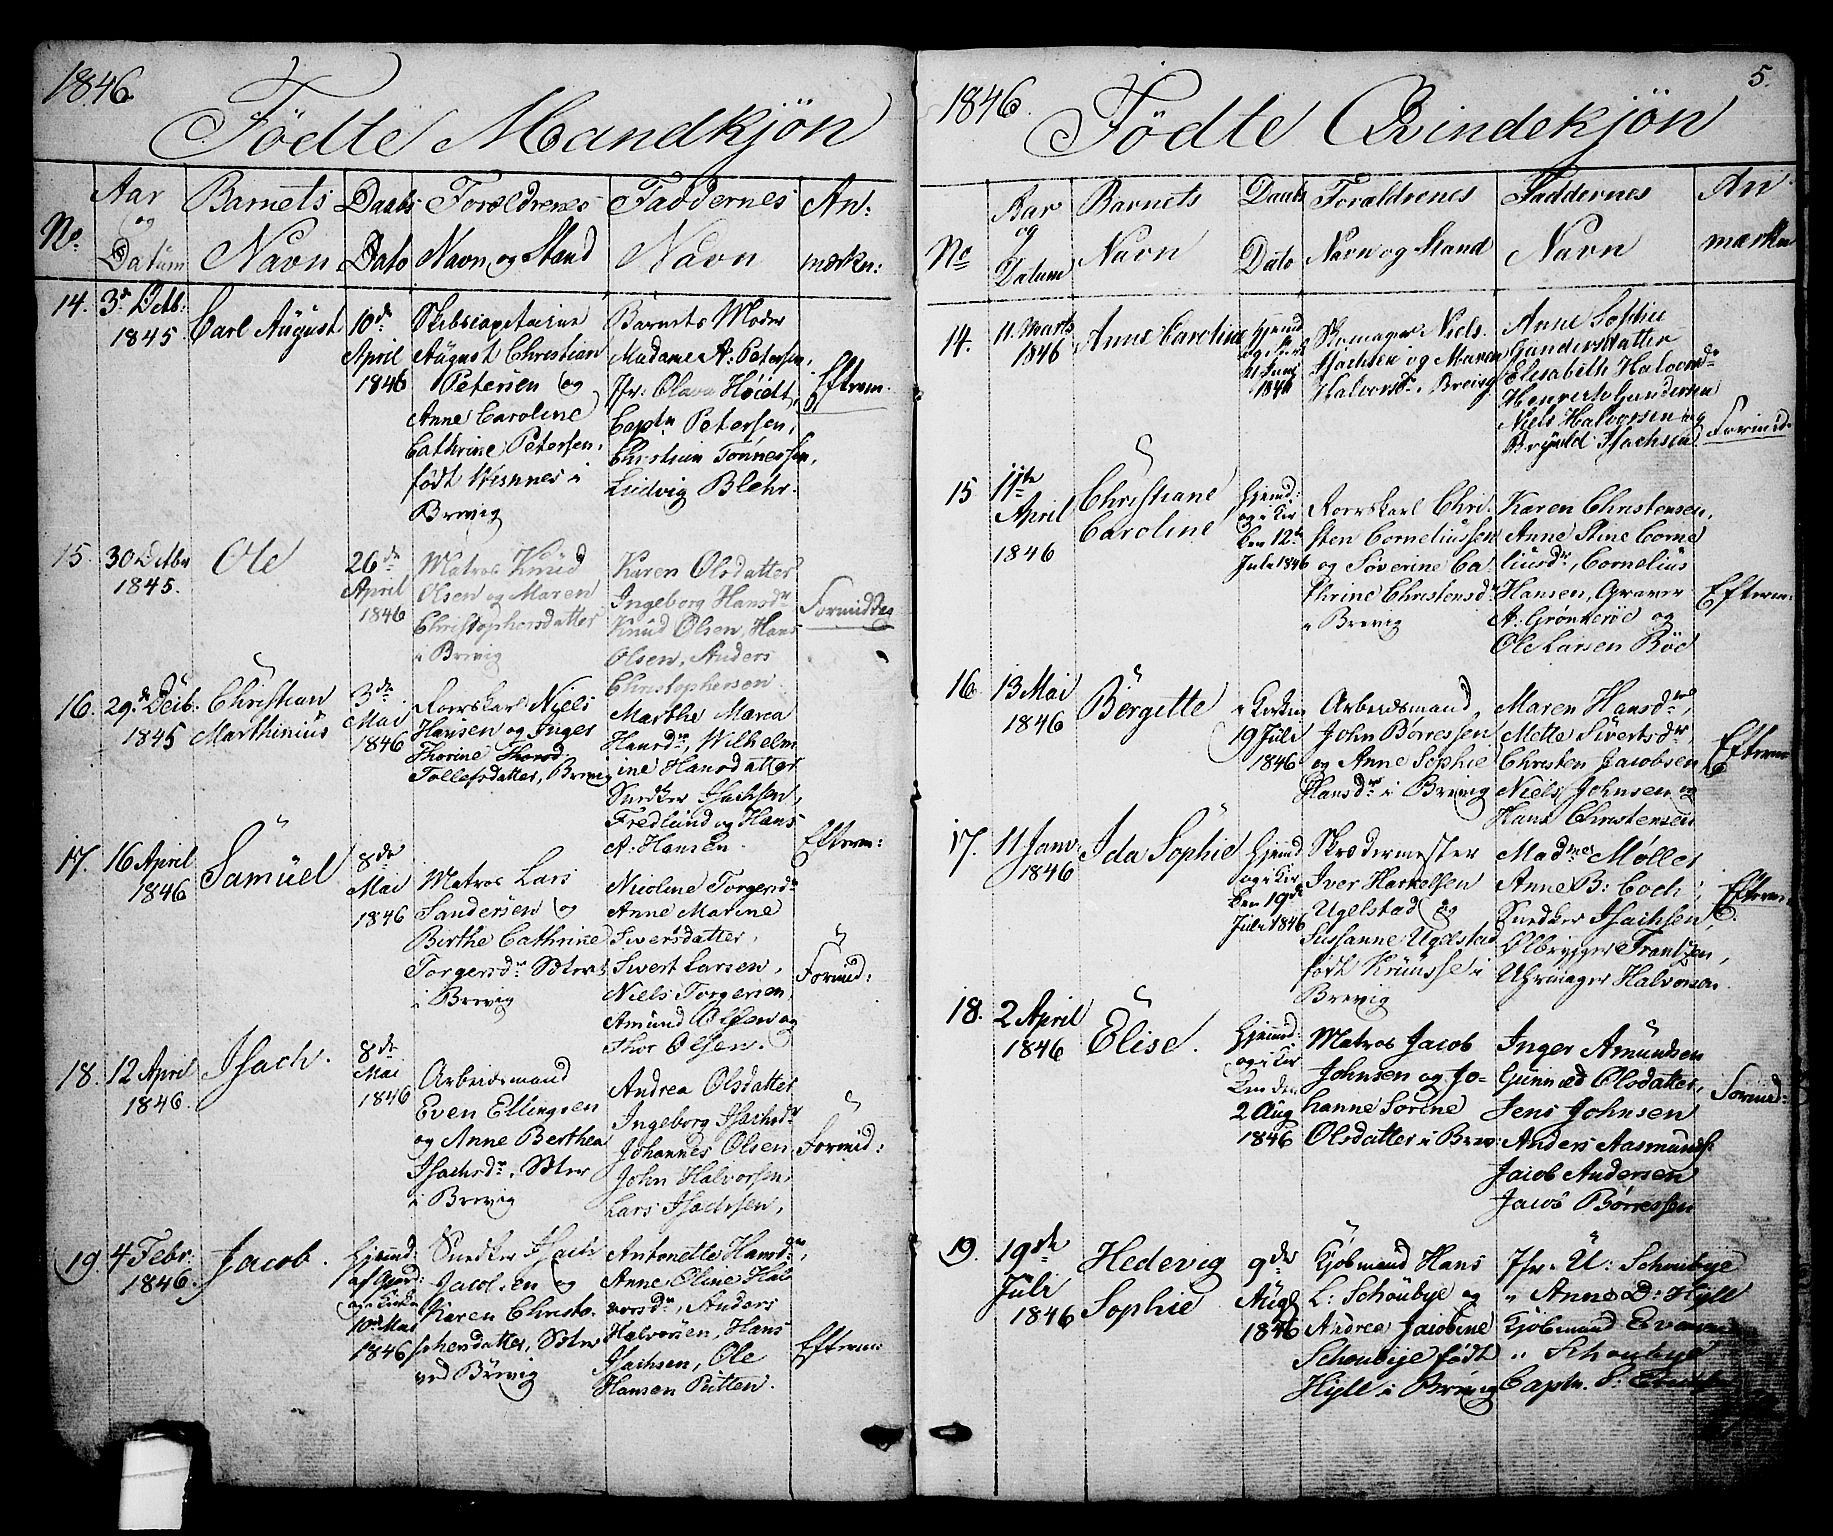 1846.
Födte Mandkjön
No.
Aar
og
Datum
Barnets
Navn
Daabs
Dato
Forældrenes
Navn og Stand
Faddernes
Navn
An:
mærkn:
14.
3de Octb:
1845.
Carl August
10de
April
1846
Skibscapitaine
August Christian
Petersen og
Anne Caroline
Cathrine Petersen,
født
i
Brevig
Barnets Moder
Madame A. Petersen,
Jfr: Olava Høidt,
Captn Petersen,
Christian Tönnersen,
Ludvig Blehr.
Efterm.
15.
30 Octbr
1845.
Ole
26de
April
1846
Matros Knud
Olsen og Maren
Christophersdatter
i Brevig
Karen Olsdatter
Ingeborg Hansdr
Knud Olsen, Hans
Olsen, Anders
Christophersen
Formiddag
16.
29de
1845
Christian
Marthinius
3de
Mai
1846
Roerskarl Niels
Hansen og Inger
Thorine Thorsd
Tollefsdatter, Brevig
Marthe Marea
Hansdr, Wilhelm
ine Hansdatter
Snedker Isachsen,
Fredlund og Hans
A. Hansen.
Efterm:
17.
16 April
1846
Samuel
8de
Mai
1846
Matros Lars
Sandersen og
Berthe Cathrine
Torgersdr
i Brevig
Nicoline Torgersdr
Anne Marine
Siversdatter,
Sivert Larsen,
Niels Torgersen,
Amund Olsen og
Thor Olsen.
Formid:
18.
12 April
1846.
Isach.
8de
Mai
1846
Arbeidsmand
Even Ellingsen
og Anne Berthea
Isachsdr,
i Brevig
Andrea Olsdatter
Ingeborg Isachsdr
Johannes Olsen
John Halvorsen,
Lars Isachsen,
Formid:
19.
4 Febr.
1846.
Jacob.
Hjemd.
af
og i Kirken
10de Mai
1846
Snedker Isach
Jacobsen og
Karen Christo.
phersdatter,
ved Brevig
Antonette Hansdr,
Anne Oline Hal
vorsdr, Anders
Halvorsen, Hans
Isachsen, Ole
Hansen Putten.
Efterm
1846.
5.
Födte Qvindekjön
No
Aar
og
Datum
Barnets
Navn
Daabs
Dato
Forældrenes
Navn og Stand
Faddernes
Navn
An
mærkn
14.
11. Marts
1846
Anne Caroline
Hjemd
og i Kirk
21 Juni
1846
Skomager Niels
Isachsen og Maren
Halvorsdr i Brevig
Anne Sophie
Gundersdatter
Elisabeth Halvorsdr
Henrik Gundersen
Niels Halvorsen og
Brynild Isachsen
Formid.
15
11te
April
1846
Christiane
Caroline
Hjemd:
og i Kir
ken 12te
Juli 1846
Roerskarl Chri-
sten Corneliussen
og Söverine Ca-
thrine Christensdr
i Brevig
Karen Christensen,
Anne Stine Corne
liusdr, Cornelius
Hansen, Graver
A. Grönneröe og
Ole Larsen Röd
Efterm:
16.
13 Mai
1846
Börgitte
i Kirken
19 Juli
1846
Arbeidsmand
John Börresen
og Anne Sophie
Hansdr i Brevig
Maren Hansdr,
Mette Sivertsdr
Christen Jacobsen
Niels Johnsen og
Hans Christensen
Efterm
17.
11 Janr.
1846
Ida Sophie
Hjemd
og i Kir
ken 19de
Juli 1846
Skrædermester
Iver Harkelsen
Ugelstad og
Susanne Ugelstad
født Kruusse i
Brevig
Madmes Møller
Anne B: Coch;
Snedker Isachsen,
Ølbrygger Frantzen,
Uhrmager Halvorsen.
Efterm.
18.
2 April
1846
Elise.
Hjemd:
og i Kir
ken den
2 Aug
1846
Matros Jacob
Johnsen og Jo-
hanne Sörine
Olsdatter i Brev:
Inger Amundsen
Gunnild Olsdatter,
Jens Johnsen
Anders Aasmunds.
Jacob Andersen
Jacob Børressen
Formid:
19.
19de
Juli
1846
Hedevig
Sophie
9de
Aug
1846
Kjøbmand Hans
L: Schoubye og
Andrea Jacobine
Schoubye født
Hyll i Brevig
Jfr. U: Schoubye
" Anne D: Hyll
Kjøbmand
" Schoubye
Captn.